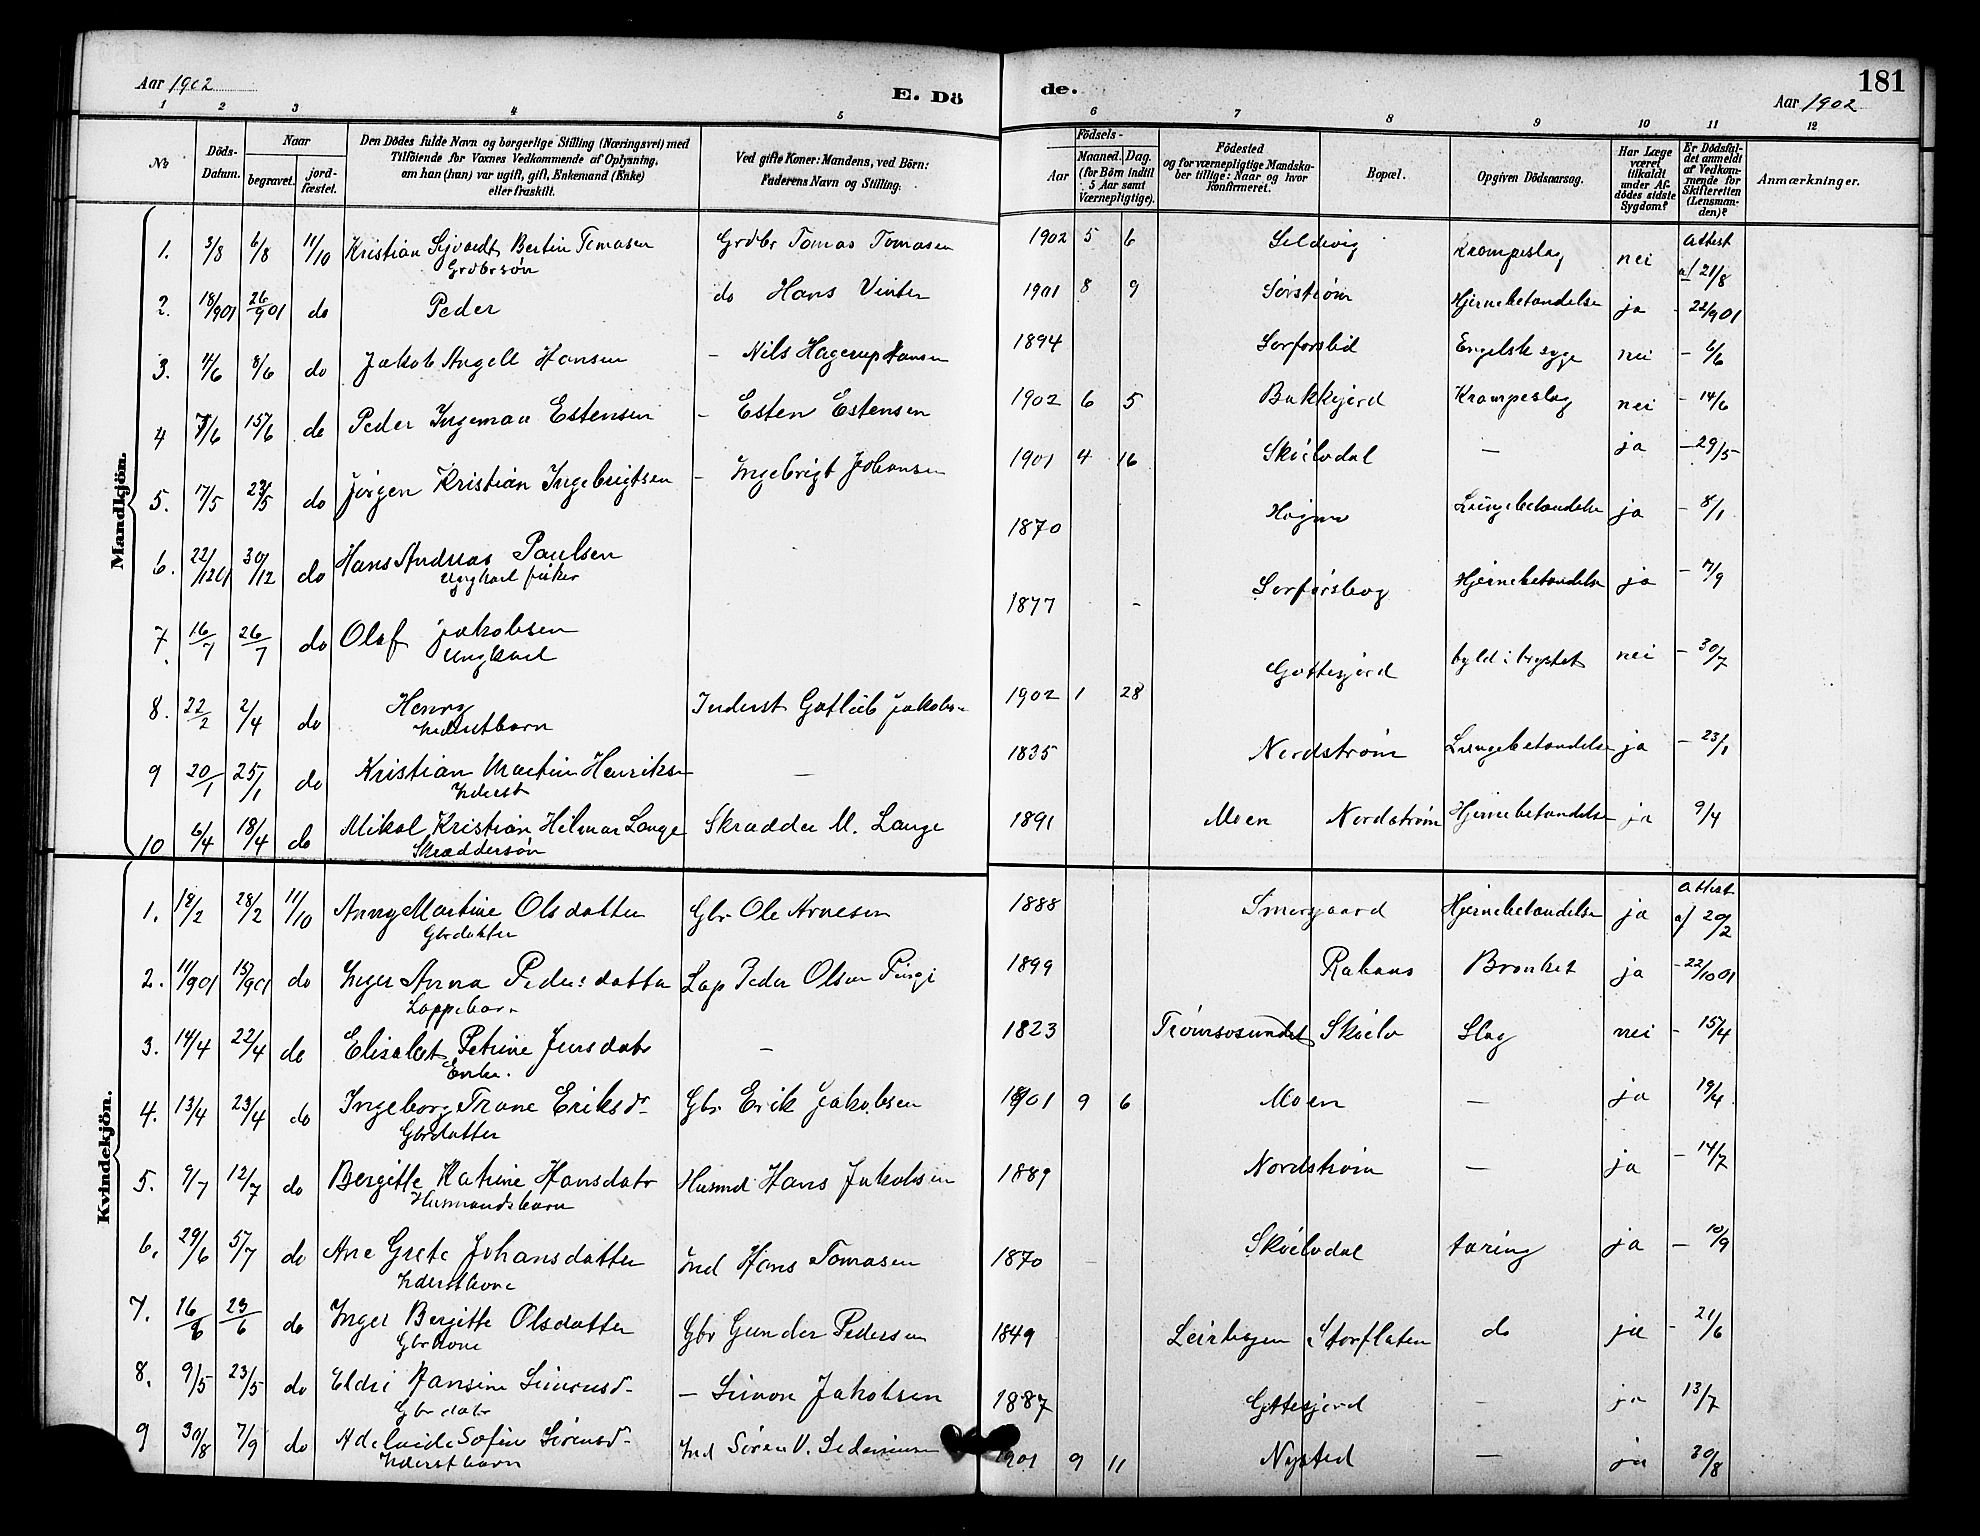 Aar 1902
E. Dö
de.
181
Aar 1902
1 2 3 4 5 6 7 8 9 10 11 12
No
Döds-Datum.
Naar
begravet.
jord-fæstet.
Den Dödes fulde Navn og borgerlige Stilling (Næringsvei) med
Tilföiende for Voxnes Vedkommende af Oplysning,
om han (hun) var ugift, gift, Enkemand (Enke)
eller fraskilt.
Ved gifte Koner: Mandens, ved Börn:
Faderens Navn og Stilling.
Födsels-
Aar
Maaned. Dag.
(for Börn indtil
5 Aar samt
Værnepligtige).
Födested
og for værnepligtige Mandska-
ber tillige: Naar og hvor
Konfirmeret.
Bopæl.
Opgiven Dödsaarsag.
Har Læge
været
tilkaldt
under Af-
dödes sidste
Sygdom?
Er Dödsfal-
det anmeldt
af Vedkom-
mende for
Skifteretten
(Lensman-
den)?
Anmærkninger.
Mandkjön.
1. 3/8 6/8 11/10 Kristian Sigvardt Bertin Tomasen Grdbr Tomas Tomasen 1902 5 6 Seldivig Krampeslag nei Attest af 21/8
Grdbrsøn
2. 18/901 26/901 do Peder do Hans Vinter 1901 8 9 Sørstrøm Hjernebetændelse ja - 22/901
3. 4/6 8/6 do Jakob Angell Hansen - Nils Hagerup Hansen 1894 Engelsk syge nei - 6/6
4 7/6 15/6 do Peder Ingeman Estensen - Esten Estensen 1902 6 5 Bakkejord Krampeslag nei - 14/6
5. 7/5 23/5 do Jørgen Kristian Ingebrigtsen - Ingebrigt Johansen 1901 4 16 Skoelvdal - ja - 29/5
6. 22/1201 30/12 do Hans Andreas Paulsen 1870 Lungebetændelse ja - 8/1
Ungkarl fisker
7. 16/7 26/7 do Olaf Jakobsen 1877 - Hjernebetændelse ja - 7/9
Ungkarl
8. 22/2 2/4 do Henry Inderst Gotlieb Jakobs- 1902 1 28 Gottesjord byld i brystet nei - 30/7
Inderstbarn
9 20/1 25/1 do Kristian Martin Henriks- - 1835 Nordstrøm Lungebetændelse ja - 23/1
Inderst
10 6/4 18/4 do Mikal Kristian Hilmar Lange Skrædder M. Lange 1891 Moen Nordstrøm Hjernebetændelse ja 9/4
Skræddersøn
Kvindekjön.
1. 18/2 28/2 11/10 Anny Martine Olsdatter Gbr Ole Arnesen 1888 Smørgaard Hjernebetændelse ja Attest af 20/2
Gbrdatter
2. 11/901 15/901 do Inger Anna Pedersdatter Lap Peder Olsen 1899 Bronket ja - 22/1001
Lappebarn
3. 14/4 22/4 do Elisabet Petrine Jensdatr - 1823 Tromsøsundet Skoelv Slag nei - 15/4
Enke.
4. 13/4 23/4 do Ingeborg Trane Eriksdr Gbr Erik Jakobsen 1901 9 6 Moen - ja 19/4
Gbrdatter
5. 9/7 12/7 do Bergitte Katrine Hansdatr Husmd Hans Jakobsen 1889 Nordstrøm - ja - 14/7
Husmandsbarn
6. 29/6 5/7 do Ane Grete Johansdatter Ind Hans Tomasen 1870 Skoelvdal tæring ja - 10/9
Inderstkone
7. 16/6 23/6 do Inger Bergitte Olsdatter Gbr Gunder Pedersen 1849 Storflaten do ja - 21/6
Gbrkone
8. 9/5 23/5 do Eldri Hansine Simonsd- - Simon Jakobsen 1887 Gottesjord - ja 13/7
Gbrdatr
9 30/8 7/9 do Adelaide Sofie Sørensd- Ind Søren V. 1901 9 11 Nysted - ja 30/8
Inderstbarn